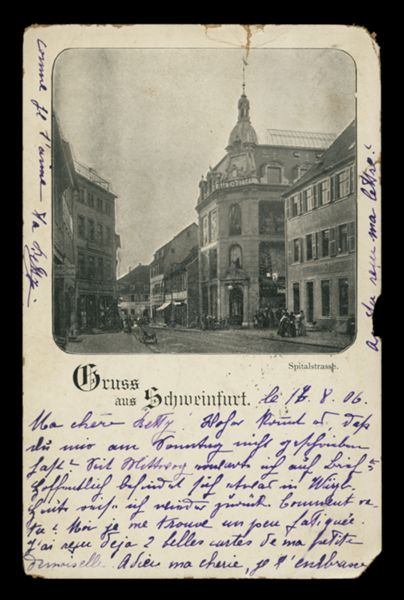 Spitalstrasse.
Gruss
aus Schweinfurt. le 17. 8. 06.
Ma chère Betty! Woher kommt es, daß
du mir am Sonntag nicht geschrieben
hast? Seit Mittwoch ich auf Brief
Hoffentlich befindet sich etwas in
Heute ich wieder zurück. Comment vas
tu? Moi je me trouve un peu fatiguée.
J'ai reçu deja 2 belles cartes de ma petite
demoiselle. Adieu ma cherie, je t'embrasse
comme je t'aime ta
As tu reçu ma lettre?